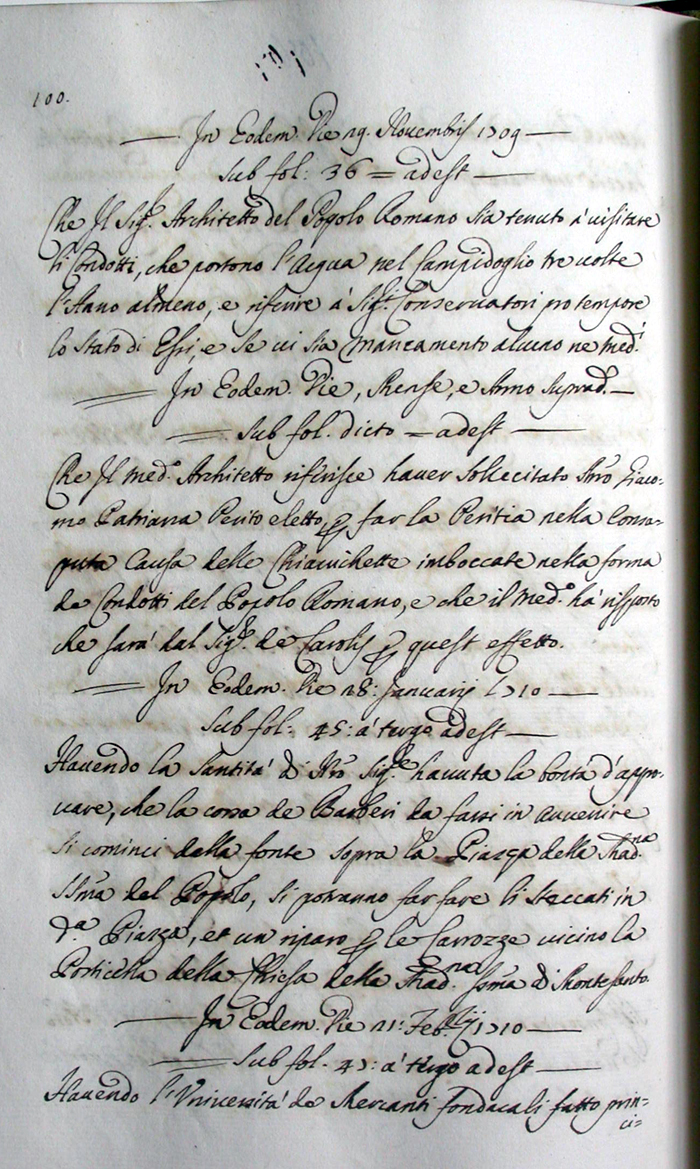 100.
In Eodem. Die 29. Novembris 1709
Sub fol: 36 = adest
Che Il Sig.r Architetto del Popolo Romano sia tenuto à visitare
li Condotti, che portono l'Acqua nel Campidoglio tre volte
l'Anno almeno, e riferire à Sig.ri Conservatori pro tempore
lo stato di Essi, e se vi sia mancamento alcuno ne med.i
In Eodem. Die, Mense, e Anno suprad.
Sub fol. dicto = adest
Che Il med.o Architetto riferisce haver sollecitato Mro Giaco-
mo Patriarca Perito eletto, p far la Peritia nella Consa-
puta Causa delle Chiavichette imboccate nella forma
de Condotti del Popolo Romano, e che il med.o hà risposto
che sarà dal Sig.r de Carolis p quest effetto.
In Eodem. Die 28: Januarij 1710
Sub fol: 45: à tergo adest
Havendo la Santità di Nro Sig.re havuta la bontà d'appro-
vare, che la corsa de Barberi da farsi in avvenire
si cominci dalla fonte sopra la Piazza della Mad.na
SSma del Popolo, si potranno far fare li steccati in
d.a Piazza, et un riparo p le Carrozze vicino la
Porticella della Chiesa della Mad.na SSma di Monte Santo.
In Eodem. Die 21: Feb.rij 1710
Sub fol. 47: à tergo adest
Havendo l'Vniversità de Mercanti fondacali fatto prin-
ci=